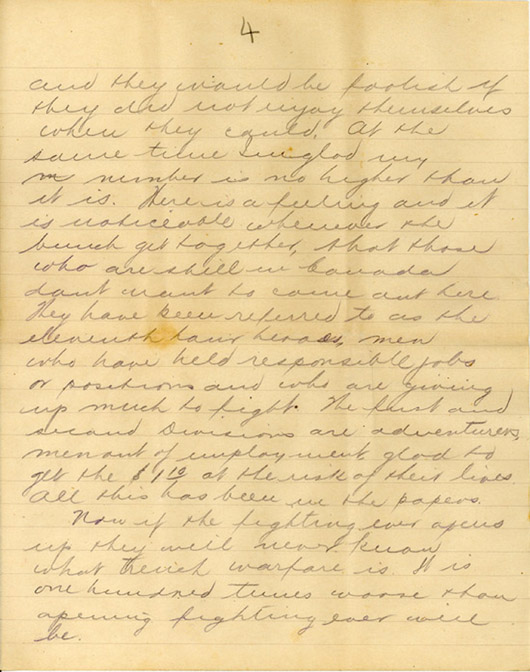 4
and they would be foolish if
they did not enjoy themselves
when they could. At the
same time I'm glad my
m number is no higher than
it is. There is a feeling and it
is noticeable wherever the
bunch get together, that those
who are still in Canada
dont want to come out here
They have been referred to as the
eleventh hour heroes, men
who have held responsible jobs
or positions and who are giving
up much to fight. The first and
second Divisions are adventurers,
men out of employment glad to
get the $1 10 at the risk of their lives.
All this has been in the papers.
Now if the fighting ever opens
up they will never know
what trench warfare is. It is
one hundred times worse than
opening fighting ever will
be.